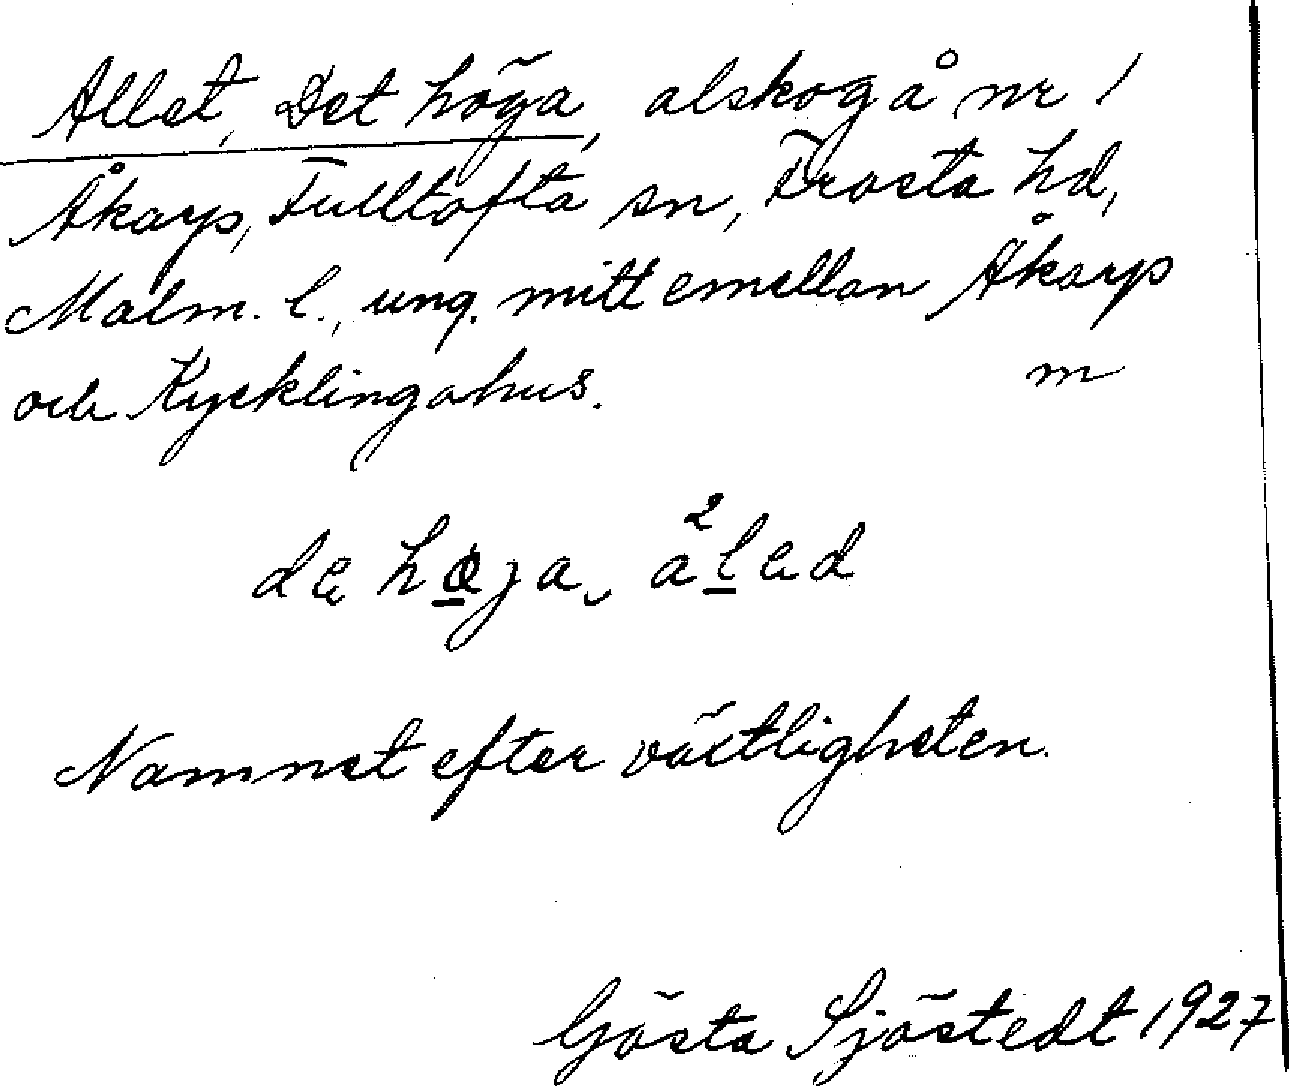 Allet, Det höga, alskog å nr 1
Åkarp, Fulltofta sn, Frosta hd,
Malm. l., ung. mitt emellan Åkarp
och Kycklingahus. m
de høja, ²aled
Namnet efter växtligheten.
Gösta Sjöstedt 1927